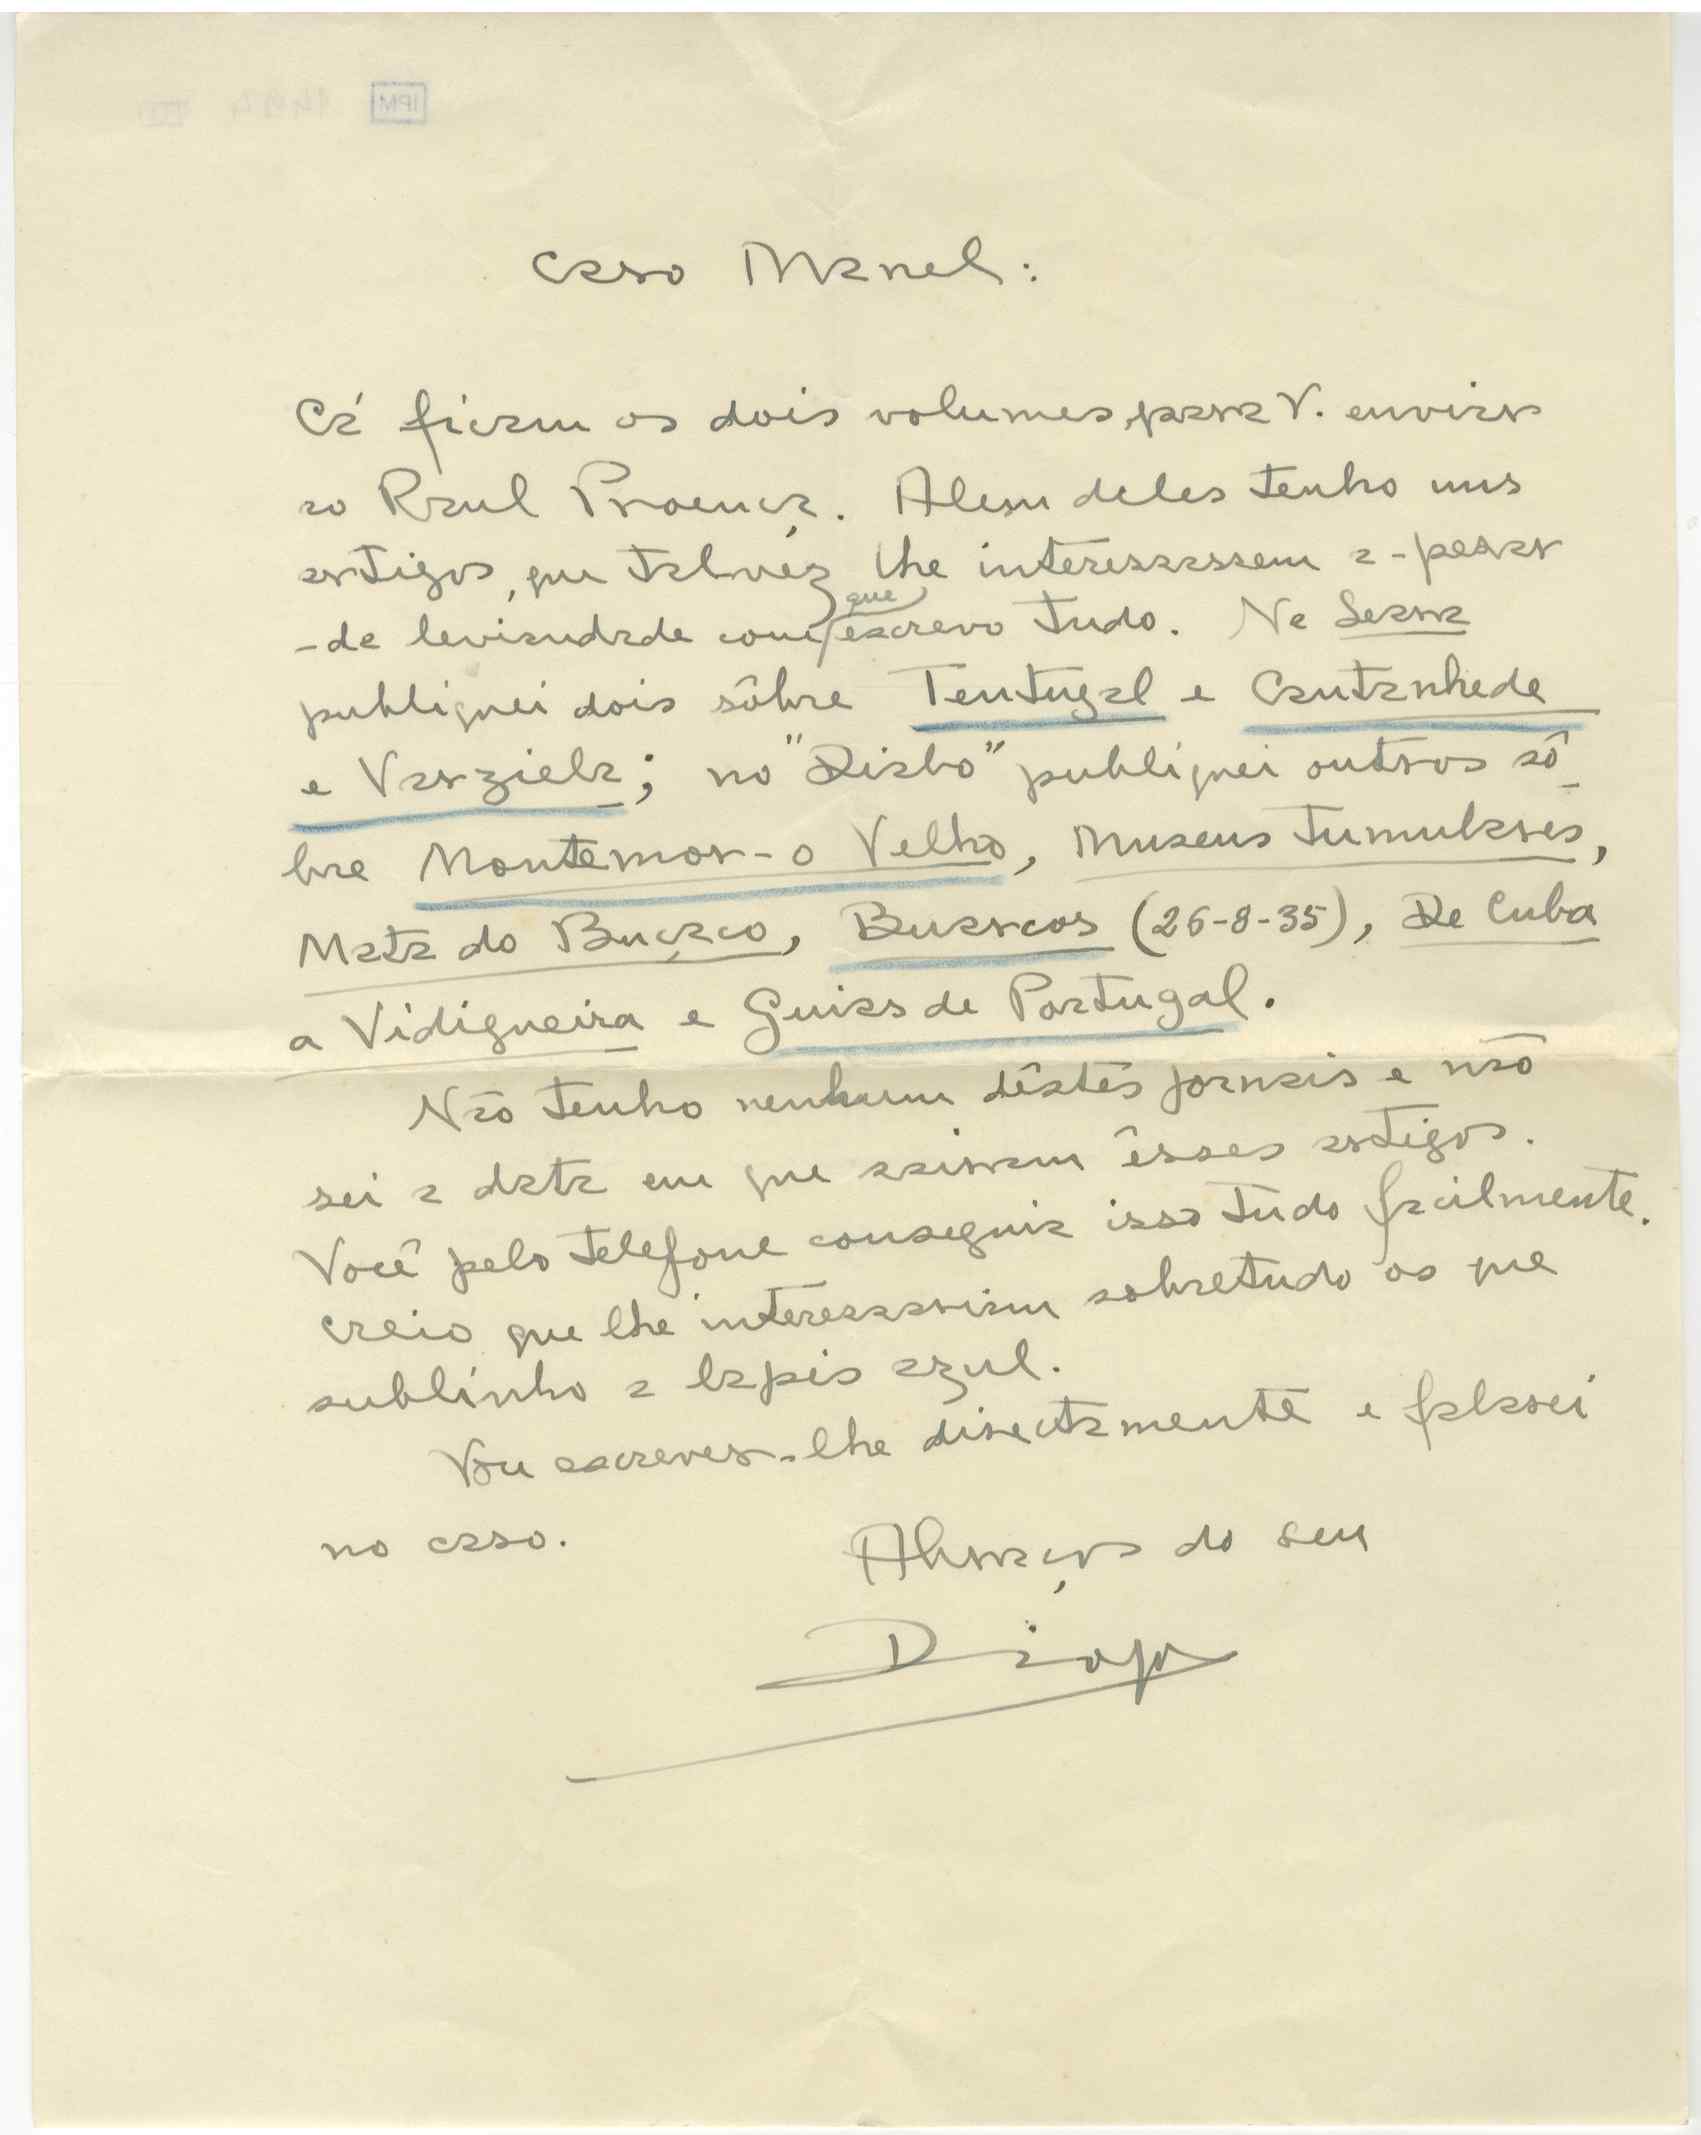 Caro Manel:
Cá ficam os dois volumes para V. enviar
ao Raul Proença. Alem deles tenho uns
artigos, que talvez lhe interessassem a-pesar
-da leviandade com que escrevo tudo. Na Seara
publiquei dois sôbre Tentugal e Cantanhede
e Varziela; no "Diabo" publiquei outros sô-
bre Montemor-o Velho, Museus tumulares,
Mata do Buçaco, Buarcos (26-8-35), De Cuba
a Vidigueira e Guias de Portugal.
Não tenho nenhum dêstes jornais e não
sei a data em que sairam êsses artigos.
Você pelo telefone conseguia isso tudo facilmente.
Creio que lhe interessariam sobretudo os que
sublinho a lapis azul.
Vou escrever-lhe directamente e falarei
no caso.
Abraços do seu
Diogo
IPM